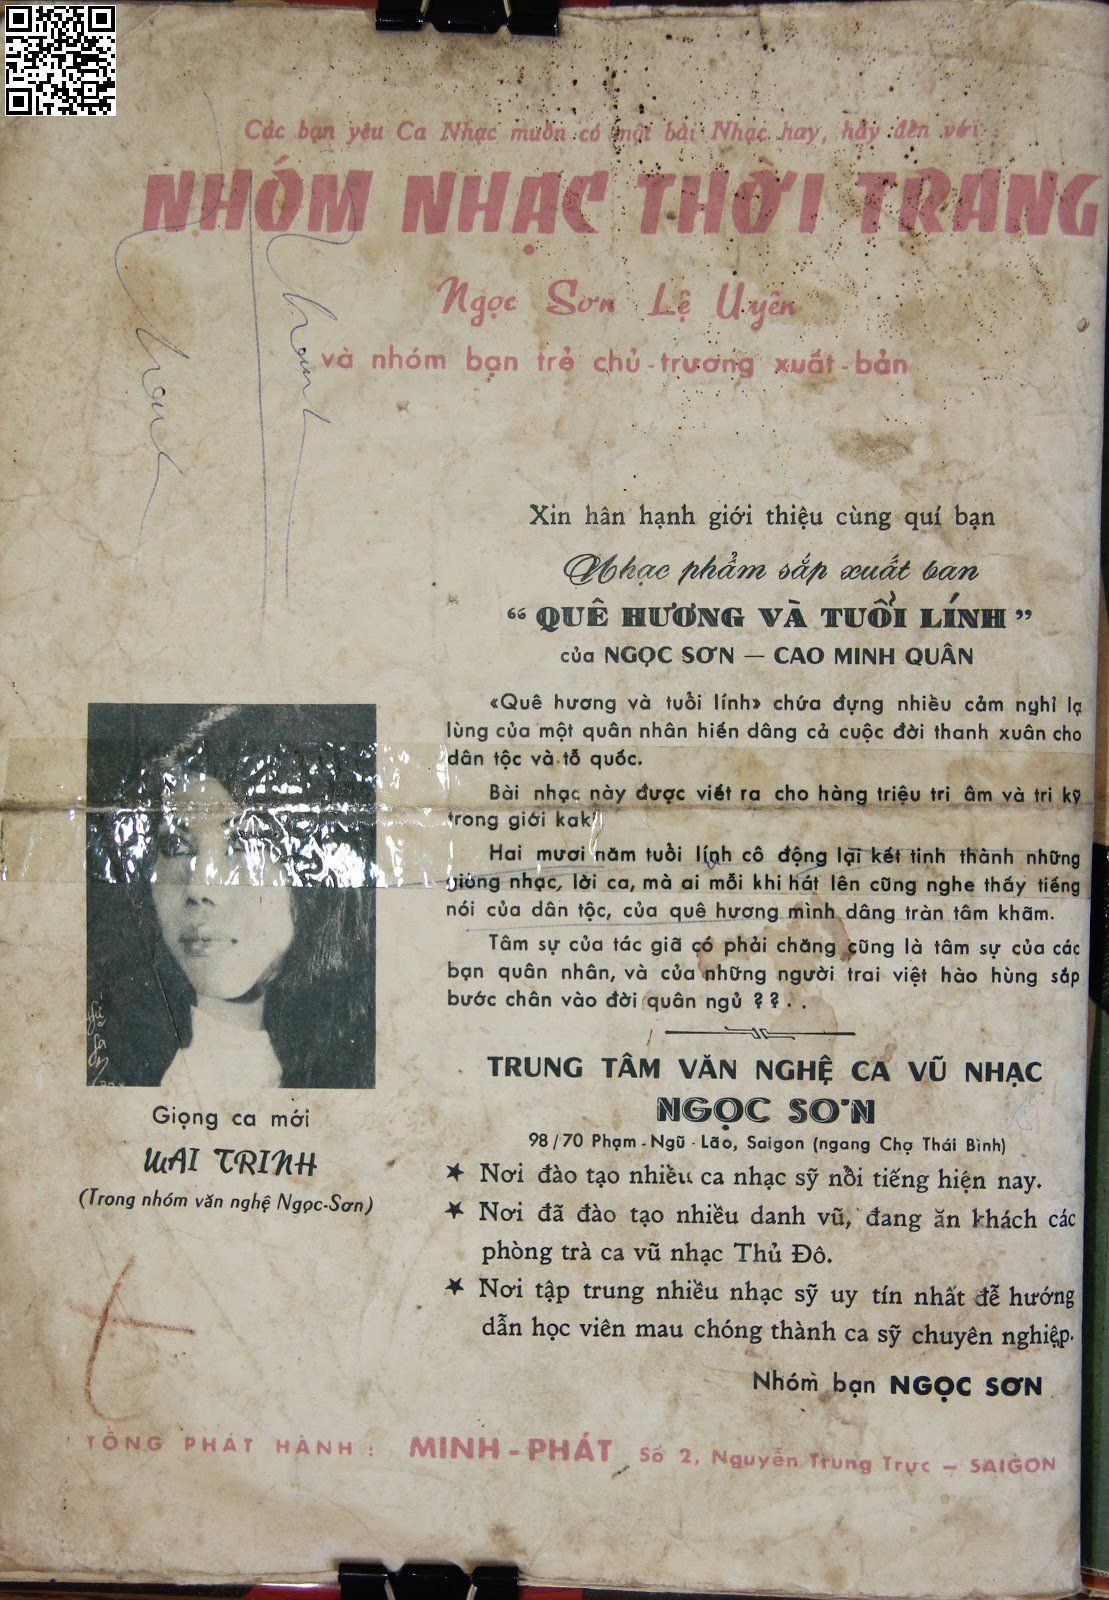 Các bạn yêu Ca Nhạc muốn có một bài Nhạc hay, hãy đến với :
NHÓM NHẠC THỜI TRANG
Ngọc Sơn Lệ Uyên
và nhóm bạn trẻ chủ-trương xuất-bản
Xin hân hạnh giới thiệu cùng quí bạn
Nhạc phẩm sắp xuất bản
“ QUÊ HƯƠNG VÀ TUỔI LÍNH ”
của NGỌC SƠN — CAO MINH QUÂN
«Quê hương và tuổi lính» chứa đựng nhiều cảm nghỉ lạ
lùng của một quân nhân hiến dâng cả cuộc đời thanh xuân cho
dân tộc và tổ quốc.
Bài nhạc này được viết ra cho hàng triệu tri âm và tri kỹ
trong giới kaki
Hai mươi năm tuổi lính cô động lại kết tinh thành những
giòng nhạc, lời ca, mà ai mỗi khi hát lên cũng nghe thấy tiếng
nói của dân tộc, của quê hương mình dâng tràn tâm khãm.
Tâm sự của tác giã có phải chăng cũng là tâm sự của các
bạn quân nhân, và của những người trai việt hào hùng sắp
bước chân vào đời quân ngủ ? ? . .
TRUNG TÂM VĂN NGHỆ CA VŨ NHẠC
NGỌC SƠN
98/70 Phạm-Ngũ-Lão, Saigon (ngang Chợ Thái Bình)
★ Nơi đào tạo nhiều ca nhạc sỹ nổi tiếng hiện nay.
★ Nơi đã đào tạo nhiều danh vũ, đang ăn khách các
phòng trà ca vũ nhạc Thủ Đô.
★ Nơi tập trung nhiều nhạc sỹ uy tín nhất để hướng
dẫn học viên mau chóng thành ca sỹ chuyên nghiệp.
Nhóm bạn NGỌC SƠN
Giọng ca mới
MAI TRINH
(Trong nhóm văn nghệ Ngọc-Sơn)
TỔNG PHÁT HÀNH : MINH-PHÁT Số 2, Nguyễn Trung Trực — SAIGON